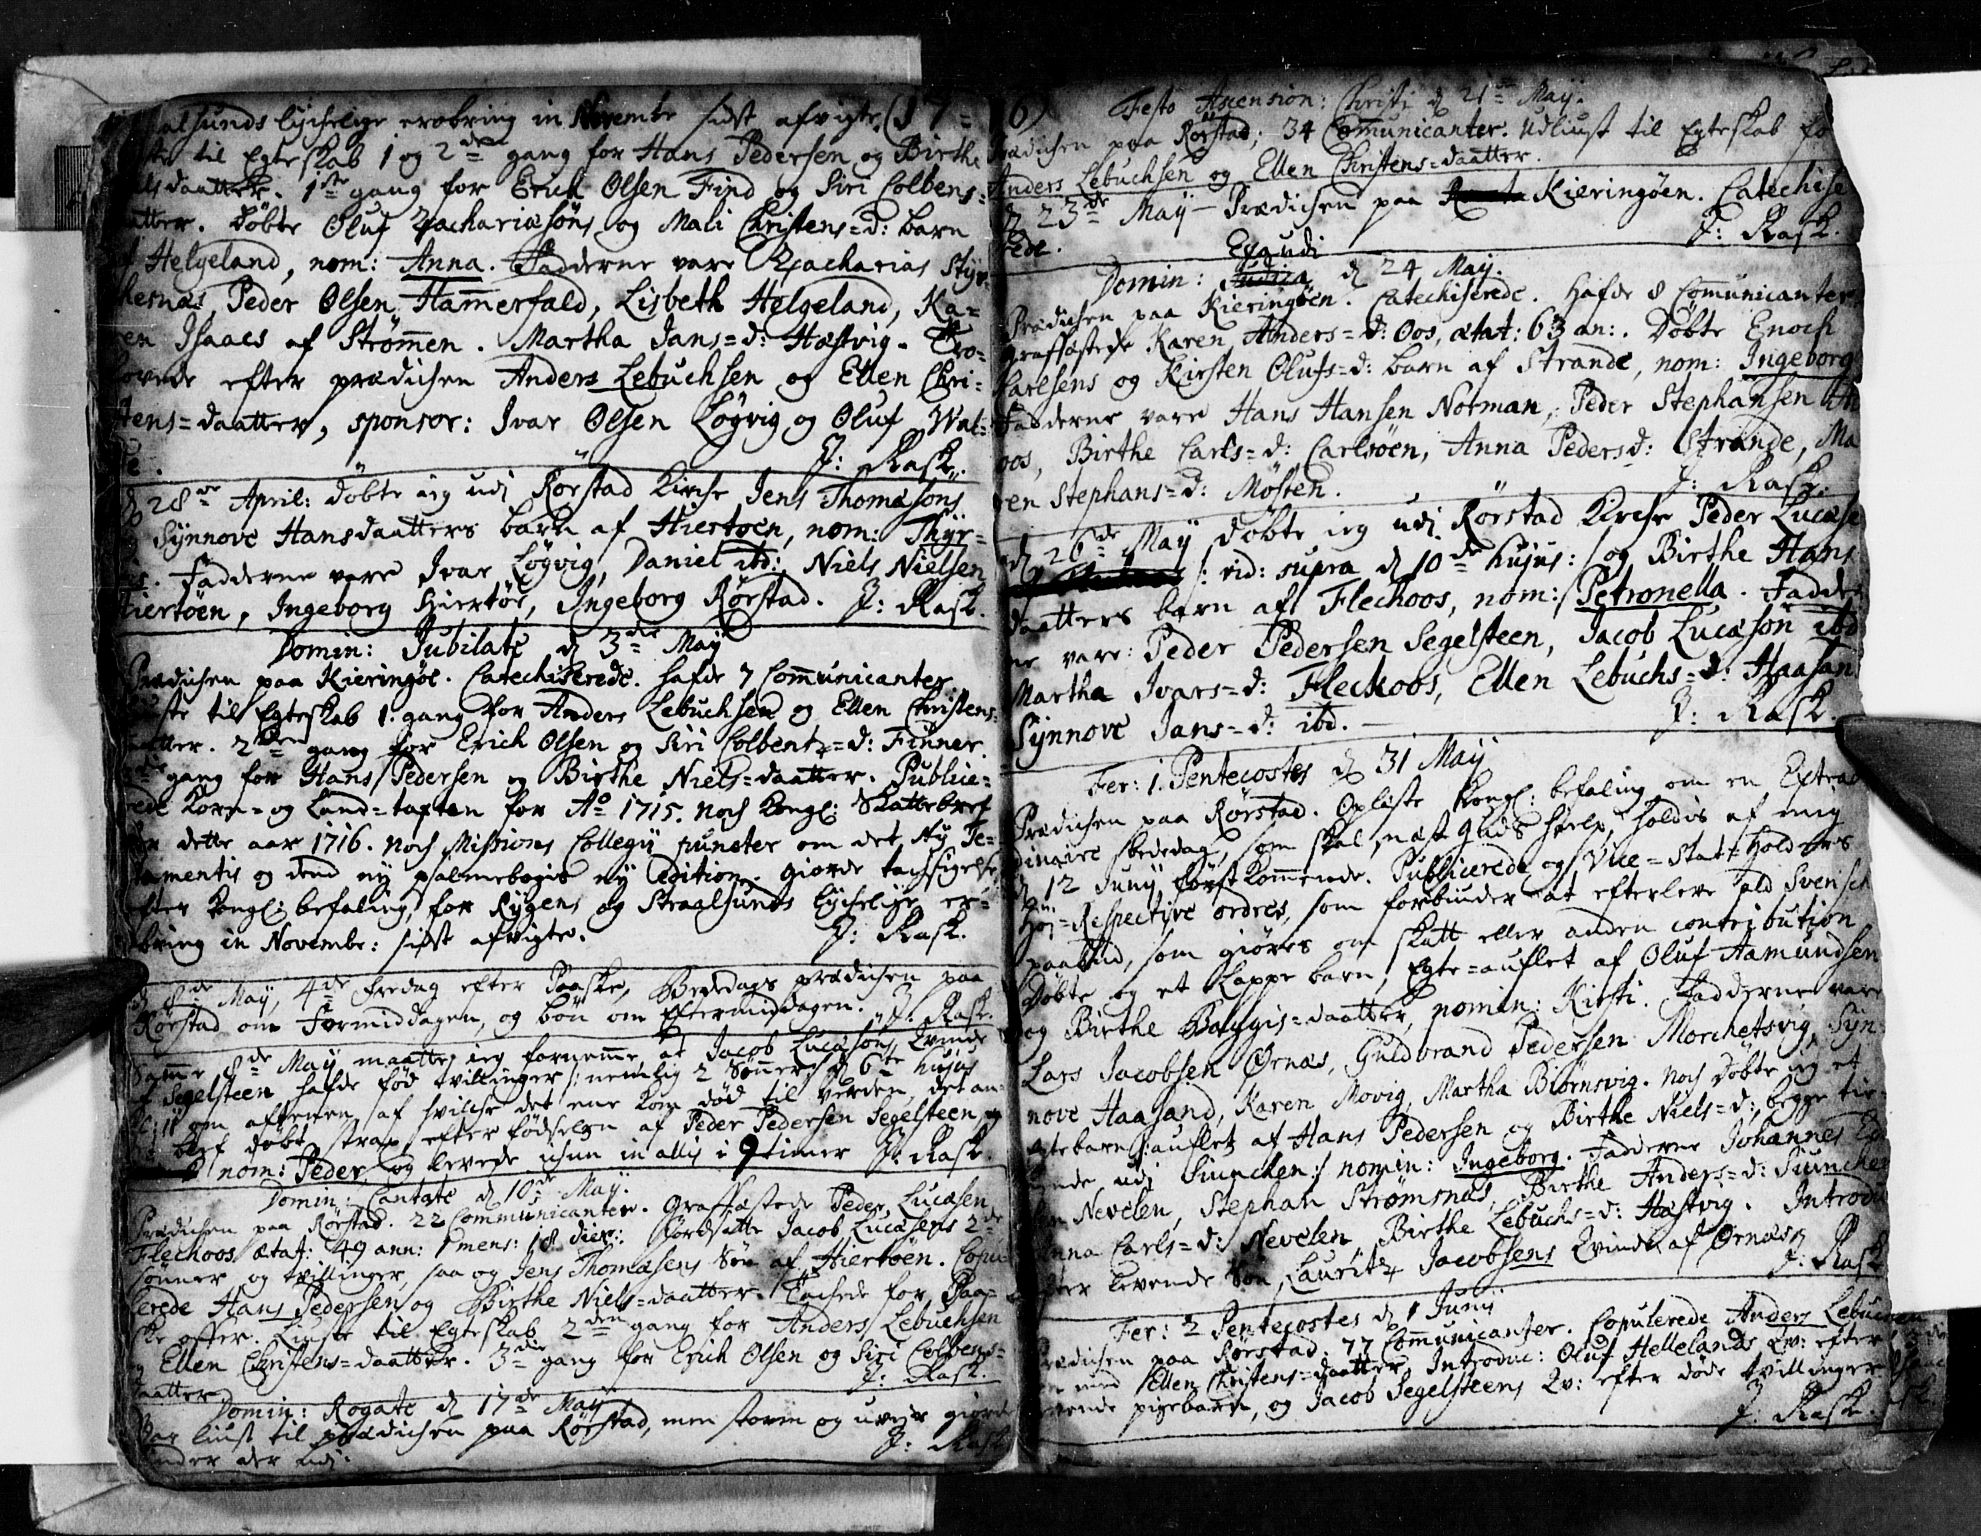 alsunds lychelige erobring in Novembr sidst afvigte. (17=
til Egteskab 1 og 2de gang for Hans Pedersen og Birthe
els daatter. 1ste gang for Erich Olsen Find og Siri Colbens=
aatter. Døbte Oluf Zachariæsøns og Mali Christens=d: barn
Helgeland, nom: Anna. Fadderne vare Zacharias Styr
hesnæs, Peder Olsen Hamerfald, Lisbeth Helgeland, Ka=
ren Isaacs af Strømen. Martha Jans=d: Hæstvig. Tro=
lovede efter prædichen Anders Lebuchsen og Ellen Chri=
stens=daatter, sponsor: Ivar Olsen Løgvig og Oluf Wal=
J: Rask.
d 28de April: døbte ieg udj Rørstad Kirche Jens Thomæsøns
Synnove Hansdaatters barn af Hiertøen, nom: Thyr=
Fadderne vare Ivar Løgvig, Daniel ibd:, Niels Nielsen
Hiertøen, Ingeborg Hiertøe, Ingeborg Rørstad. J: Rask.
Domin: Jubilate d 3de May
Prædichen paa Kieringøe. Catechiserede. hafde 7 Comunicanter
liuste til Egteskab 1: gang for Anders Lebuchsen og Ellen Christens=
aatter. 2den gang for Erich Olsen og Siri Colbents=d: Finner.
gang for Hans Pedersen og Birthe Niels=daatter. Publice=
rede Korn= og Land=taxten for Ao 1715. noch Kongl: Skattebref
for dette aar 1716. noch Missions Collegij puncter om det Ny Te=
stamentis og dend ny psalmebogis ny Edition. giorde tachsigelse
efter Kongl: befaling, for Rygens og Straalsunds lychelige er=
obring in Novembr: sidst afvigte. J: Rask.
d 8de May, 4de fredag efter Paaske, Bededags prædichen paa
Rørstad om Formiddagen, og bøn om Eftermiddagen. J: Rask.
Samme 8de May maatte ieg fornemme, at Jacob Lucæsøns Qvinde
af Segelsteen hafde fød tvillinger /: nemlig 2 Sønner :/ d 6te hujus
Kl: 11 om aftenen, af hvilche det ene kom død til verden, det an=
blef døbt strax efter fødselen af Peder Pedersen Segelsteen, og
nom: Peder, og levede uhun in alles i 9 timer J: Rask.
Domin: Cantate d 10de May.
Prædichen paa Rørstad. 22 Communicanter. Graffæstede Peder Lucæsen
Flechoos ætat: 49 ann: 1 mens: 18 dier: Jordsatte Jacob Lucæsens 2de
sønner og tvillinger, saa og Jens Thomæsens Søn af Hiertøen. Copu
lerede Hans Pedersen og Birthe Niels=daatter. Tachede for Paa=
ske offer. Liuste til Egteskab 2den gang for Anders Lebuchsen
og Ellen Christens=daatter. 3de gang for Erich Olsen og Siri Colbens=
daatter. J: Rask.
Domin: Rogate d 17de May
Var liust til prædichen paa Rørstad, men storm og uveir giorde
hinder der udj. J: Rask
16) Festo Ascension: Christi d 21de May.
Prædichen paa Rørstad; 34 Comunicanter. Udliust til Egteskab fo
Anders Lebuchsen og Ellen Christens=daatter.
d 23de May Prædichen paa Kieringøen. Catechise
rede. J: Rask.
Exaudi
Domin: d 24 May.
Prædichen paa Kieringøen. Catechiserede. hafde 8 Comunicanter
Graffæstede Karen Anders=d: Oos, ætat: 63 an:. Døbte Enoch
Carlsens og Kirsten Olufs=d: barn af Strande, nom: Ingeborg
Fadderne vare Hans Hansen Notman, Peder Stephansen
oos, Birthe Carls=d: Carlsøen, Anna Pedersd: Strande, Ma
ren Stephans=d: Møsten. J: Rask.
d 26de May døbte ieg udj Rørstad Kirche Peder Lucæse
/: vid: supra d 10de hujus: / og Birthe Hans
daatters barn af Flechoos, nom: Petronella. Fadde
ne vare: Peder Pedersen Segelsteen, Jacob Lucæsøn ibd
Martha Ivars=d: Flechoos, Ellen Lebuchs=d: Haasan
Synnove Jans=d: ibd. J: Rask.
Fer: 1. Pentecostes d 31 May
Prædichen paa Rørstad. Opliste Kongl: befaling om en Extraor
dinaire bededag, som skal, næst Guds hielp, holdis af mig
d 12 Junij førstkommende. Publicerede og Vice=Stat=Holders
Høj=Respective ordres, som forbinder at efterleve all Svensch
paabud, som giøres om skatt eller anden contribution
Døbte og et Lappe barn, Egte=auflet af Oluf Aamundsen
og Birthe Baggis=daatter, nomin: Kirsti. Fadderne vare
Lars Jacobsen Ørnæs, Guldbrand Pedersen Morchetsvig, Syn=
nove Haasand, Karen Movig, Martha Biørnsvig. noch døbte ieg et
Egte barn /: auflet af Hans Pedersen og Birthe Niels=d:, begge tie=
nende udj Siunchen :/ nomin: Ingeborg. Fadderne Johannes
Nevelen, Stephan Strømsnæs, Birthe Anders=d: Siunchen
Anna Carls=d: Nevelen, Birthe Lebuchs=d: Hæstvig. Introdu
efter levende Søn, Lauritz Jacobsens Qvinde af Ørnæs
J: Rask
Fer: 2 Pentecostes d 1 Junij
Prædichen paa Rørstad: 77 Comunicanter. Copulerede Anders Lebuchsen
med Ellen Christens=daatter. Introduc: Oluf Hellelands Qv: efter
levende pigebarn, og Jacob Segelsteens Qv: efter døde tvillinger
J: Rask.